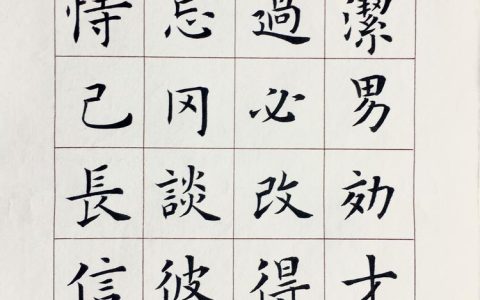 潔男効才
過必改得
忘冈談彼
恃己長信